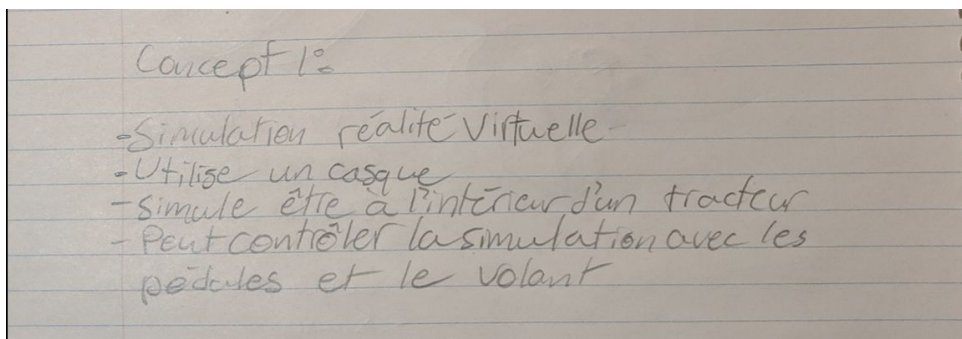 Concept 1:
- Simulation réalité virtuelle
- Utilise un casque
- Simule être à l'intérieur d'un tracteur
- Peut contrôler la simulation avec les
pédales et le volant